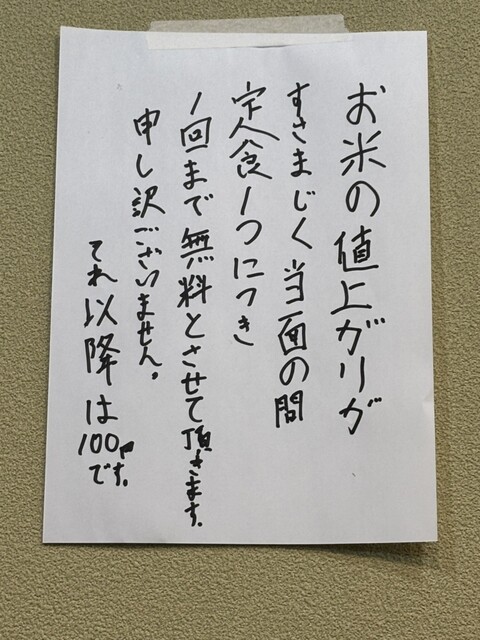 お米の値上がりが
すさまじく当面の間
定食1つにつき
1回まで無料とさせて頂きます。
申し訳ございません。
それ以降は100円です。